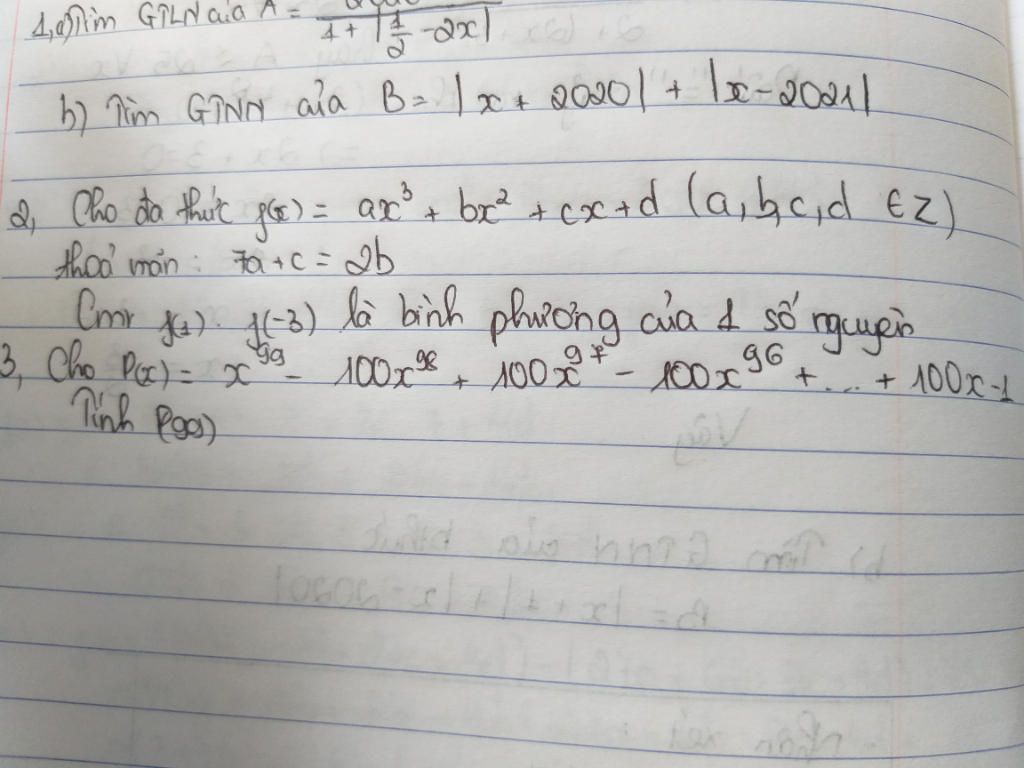 1, a) Tìm GTLN của A = 
4 + |1/2 - 2x|
b) Tìm GTNN của B = |x + 2020| + |x - 2021|
2, Cho đa thức f(x) = ax³ + bx² + cx + d (a, b, c, d ∈ Z)
thoả mãn: 7a + c = 2b
Cmr f(1) . f(-3) là bình phương của 1 số nguyên
3, Cho P(x) = x⁹⁹ - 100x⁹⁸ + 100x⁹⁷ - 100x⁹⁶ + ... + 100x - 1
Tính P(99)